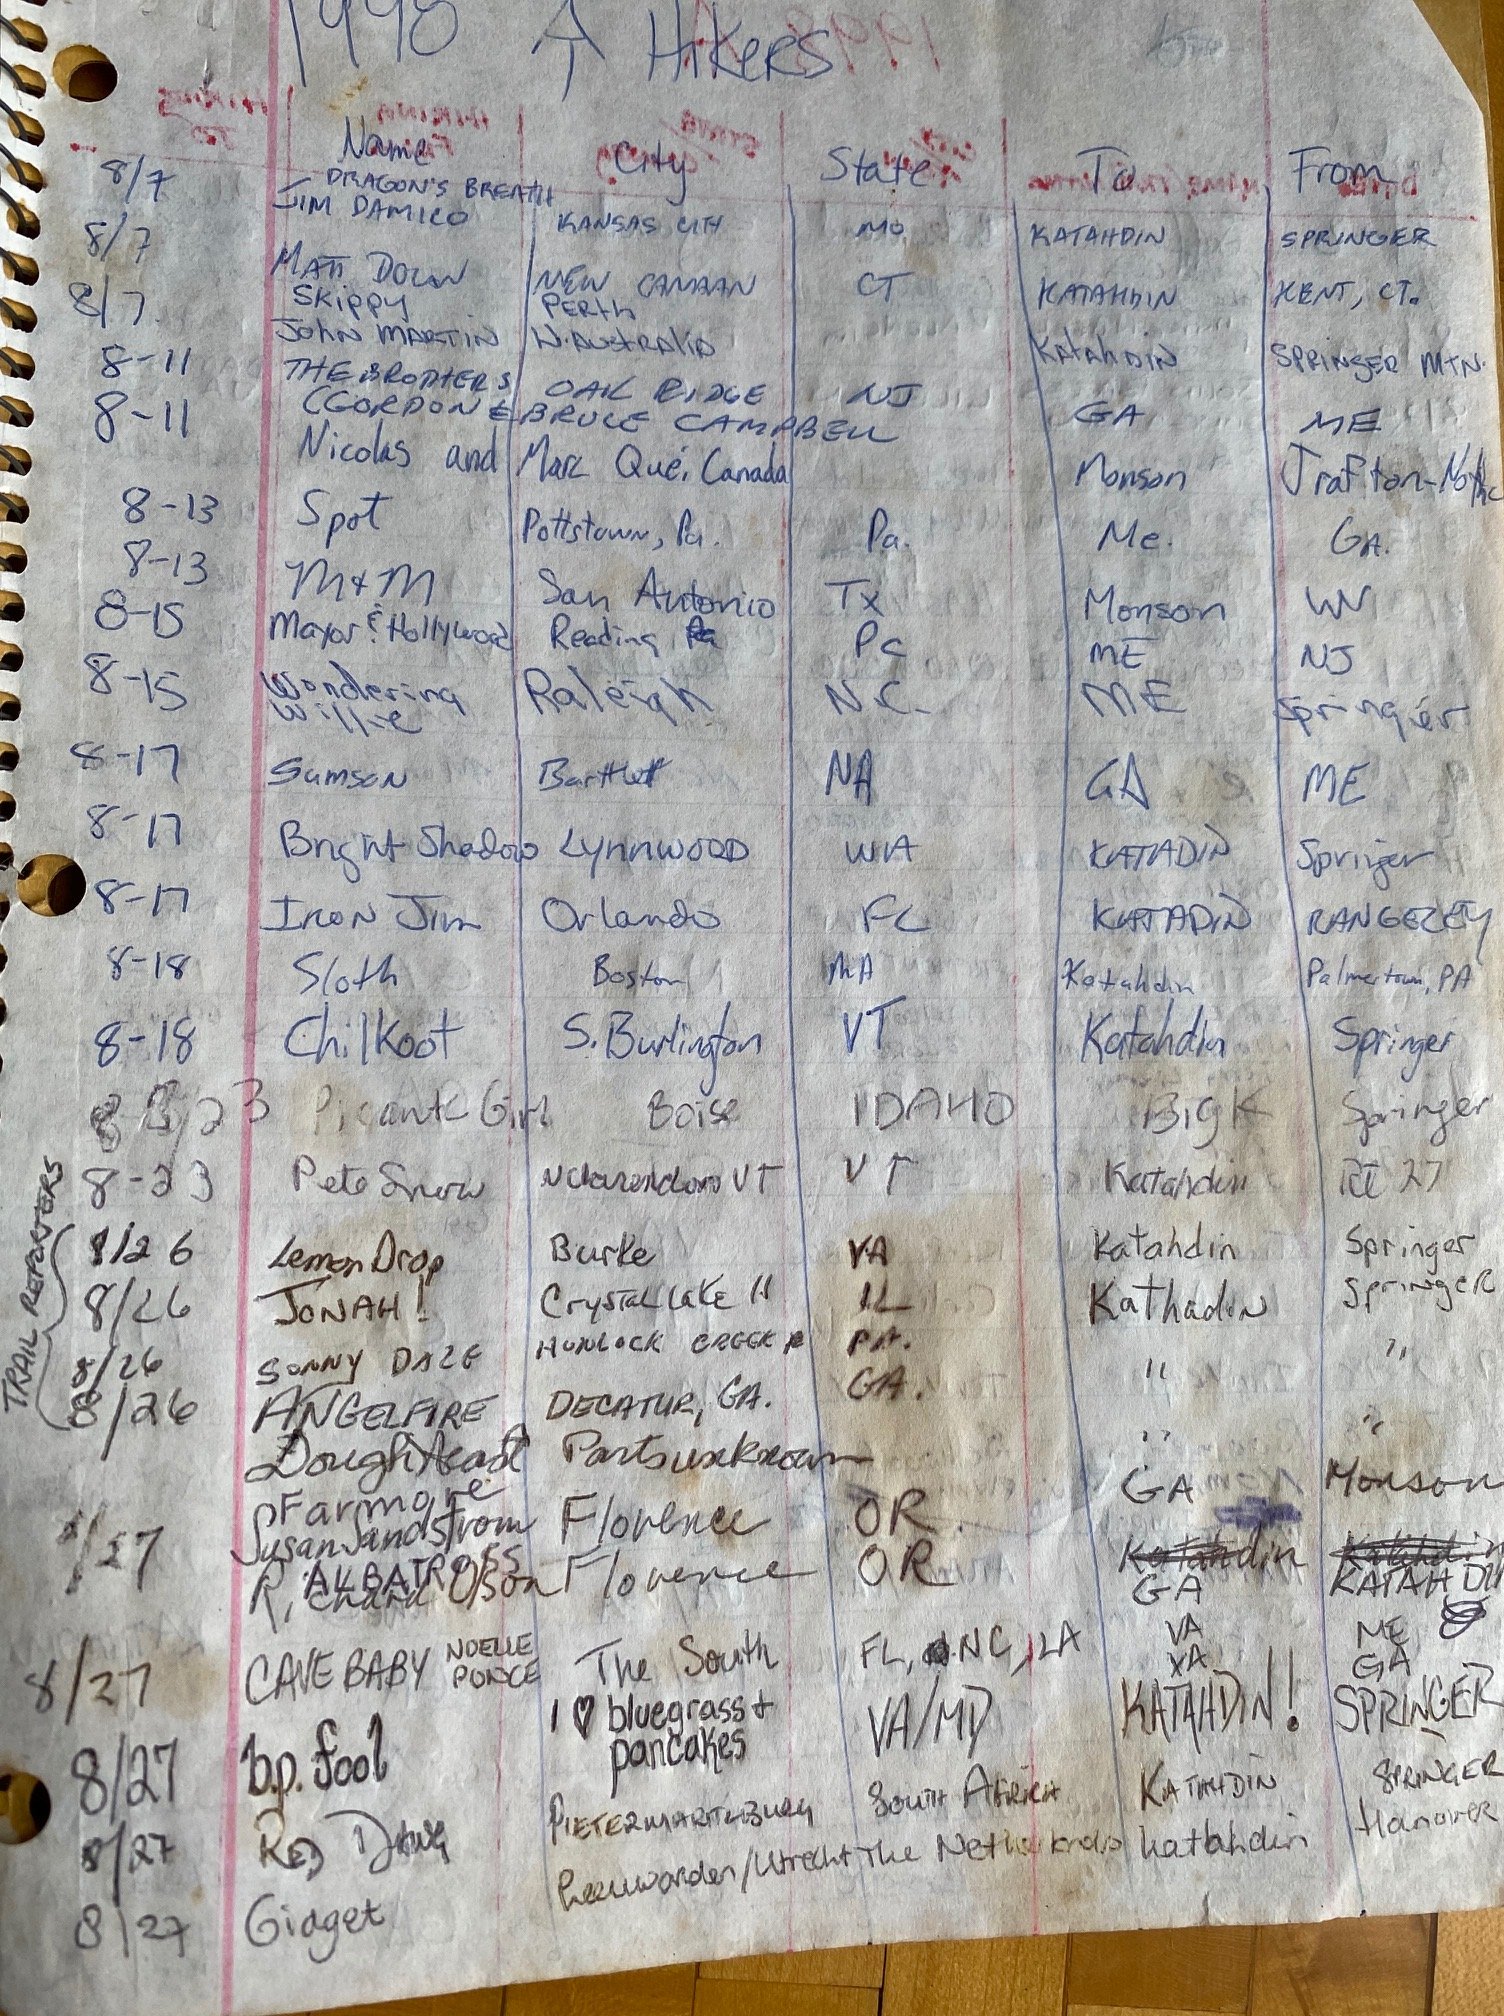 1998 AT Hikers
Name City State To From
8/7 DRAGON'S BREATH
JIM DAMICO KANSAS CITY MO KATAHDIN SPRINGER
8/7 MATT DOWN NEW CANAAN CT KATAHDIN KENT, CT.
8/7 Skippy PERTH
John MARTIN W. AUSTRALIA KatahDIN SPRINGER MTN.
8-11 THE BROTHERS OAK RIDGE NJ GA ME
(GORDON & BRUCE CAMPBELL
8-11 Nicolas and Marc Qué, Canada Monson
8-13 Spot Pottstown, Pa. Pa. Me. GA.
8-13 M+M San Antonio Tx Monson WV
8-15 Mayor & Hollywood Reading, Pa ME NJ
8-15 Wondering Raleigh N.C. ME Springer
Willie
8-17 Samson Bartlett NA GA ME
8-17 Bright Shadow Lynnwood WA KATADIN Springer
8-17 Iron Jim Orlando FL KATADIN RANGELEY
8-18 Sloth Boston MA Katahdin Palmertown, PA
8-18 Chilkoot S. Burlington VT Katahdin Springer
8/23 Picante Girl Boise IDAHO Big K Springer
8-23 Pete Snow VT VT Katahdin Rt 27
TRAIL REPORTERS
8/26 Lemon Drop Burke VA Katahdin Springer
8/26 JONAH! Crystal Lake Il IL Kathadin SpringeR
8/26 SONNY DAZE HUNLOCK CREEK PA. " "
8/26 ANGELFIRE DECATUR, GA. GA. " "
Doughheart Parts unknown GA Monson
Farmore
8/27 Susan Sandstrom Florence OR Katahdin Katahdin
ALBATROSS
Richard Olson Florence OR GA KATAHDIN
8/27 CAVE BABY NOELLE PONCE The South FL, NC, LA VA ME
VA GA
8/27 b.p. fool I ♡ bluegrass + pancakes VA/MD KATAHDIN! SPRINGER
8/27 RED DAWG PIETERMARITZBURG South Africa KATAHDIN SPRINGER
8/27 Gidget Leeuwarden/Utrecht The Netherlands Katahdin Hanover